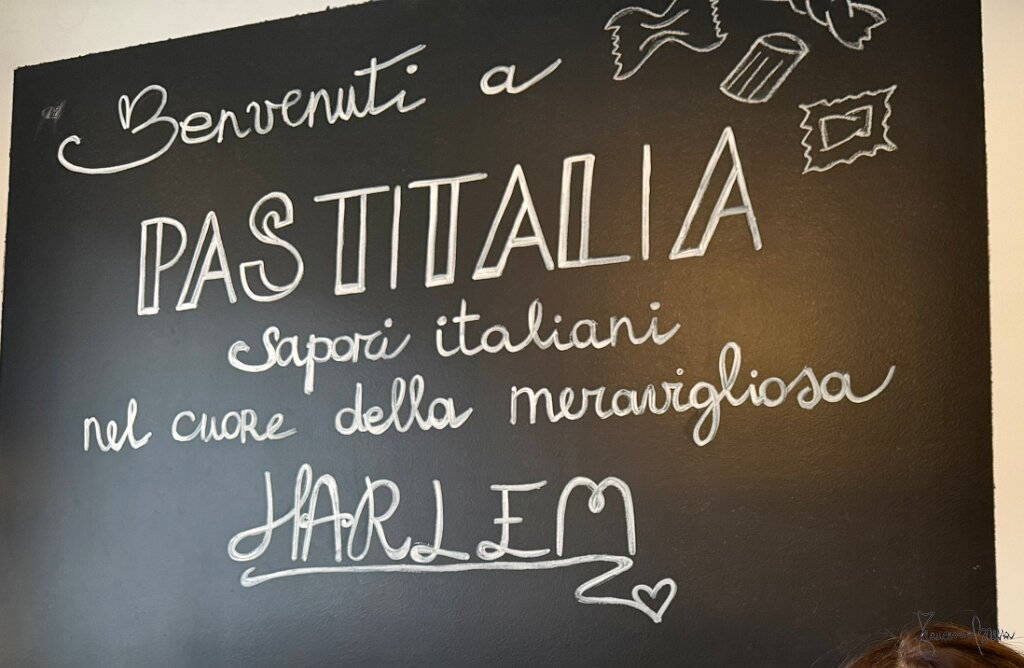 Benvenuti a
PASTITALIA
Sapori italiani
nel cuore della meravigliosa
HARLEM